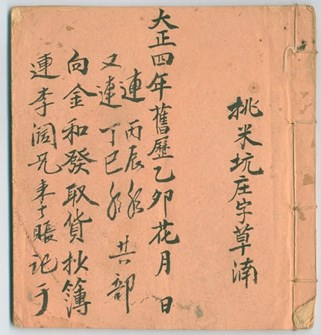 桃米坑庄字草湳
大正四年舊歷乙卯花月 日
連丙辰年
又連丁巳年 共部
向金和發取貨抄簿
連李阔兄来賬記